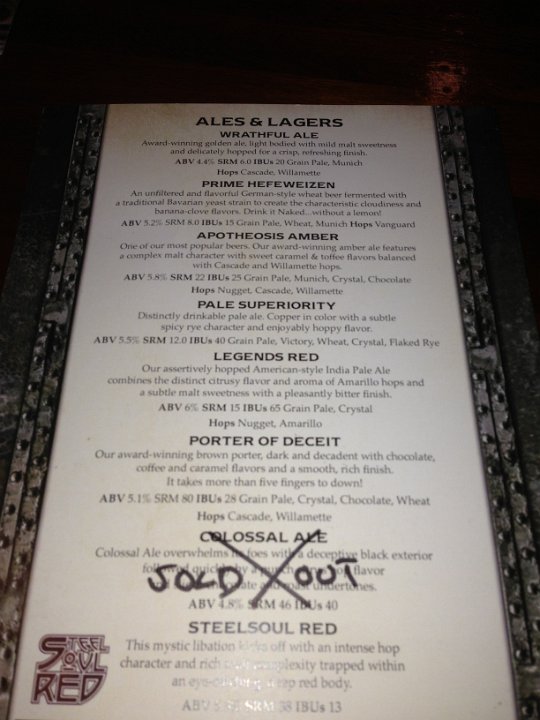 ALES & LAGERS
WRATHFUL ALE
Award-winning golden ale, light bodied with mild malt sweetness
and delicately hopped for a crisp, refreshing finish.
ABV 4.4% SRM 6.0 IBUs 20 Grain Pale, Munich
Hops Cascade, Willamette
PRIME HEFEWEIZEN
An unfiltered and flavorful German-style wheat beer fermented with
a traditional Bavarian yeast strain to create the characteristic cloudiness and
banana-clove flavors. Drink it Naked...without a lemon!
ABV 5.2% SRM 8.0 IBUs 15 Grain Pale, Wheat, Munich Hops Vanguard
APOTHEOSIS AMBER
One of our most popular beers. Our award-winning amber ale features
a complex malt character with sweet caramel & toffee flavors balanced
with Cascade and Willamette hops.
ABV 5.8% SRM 22 IBUs 25 Grain Pale, Munich, Crystal, Chocolate
Hops Nugget, Cascade, Willamette
PALE SUPERIORITY
Distinctly drinkable pale ale. Copper in color with a subtle
spicy rye character and enjoyably hoppy flavor.
ABV 5.5% SRM 12.0 IBUs 40 Grain Pale, Victory, Wheat, Crystal, Flaked Rye
LEGENDS RED
Our assertively hopped American-style India Pale Ale
combines the distinct citrusy flavor and aroma of Amarillo hops and
a subtle malt sweetness with a pleasantly bitter finish.
ABV 6% SRM 15 IBUs 65 Grain Pale, Crystal
Hops Nugget, Amarillo
PORTER OF DECEIT
Our award-winning brown porter, dark and decadent with chocolate,
coffee and caramel flavors and a smooth, rich finish.
It takes more than five fingers to down!
ABV 5.1% SRM 80 IBUs 28 Grain Pale, Crystal, Chocolate, Wheat
Hops Cascade, Willamette
COLOSSAL ALE
Colossal Ale overwhelms its foes with a deceptive black exterior
followed quickly by a punch flavor
SOLD OUT
undertones.
ABV 4.8% SRM 46 IBUs 40
STEELSOUL RED
This mystic libation kicks off with an intense hop
character and rich complexity trapped within
an deep red body.
ABV SRM 38 IBUs 13
STEEL
SOUL
RED